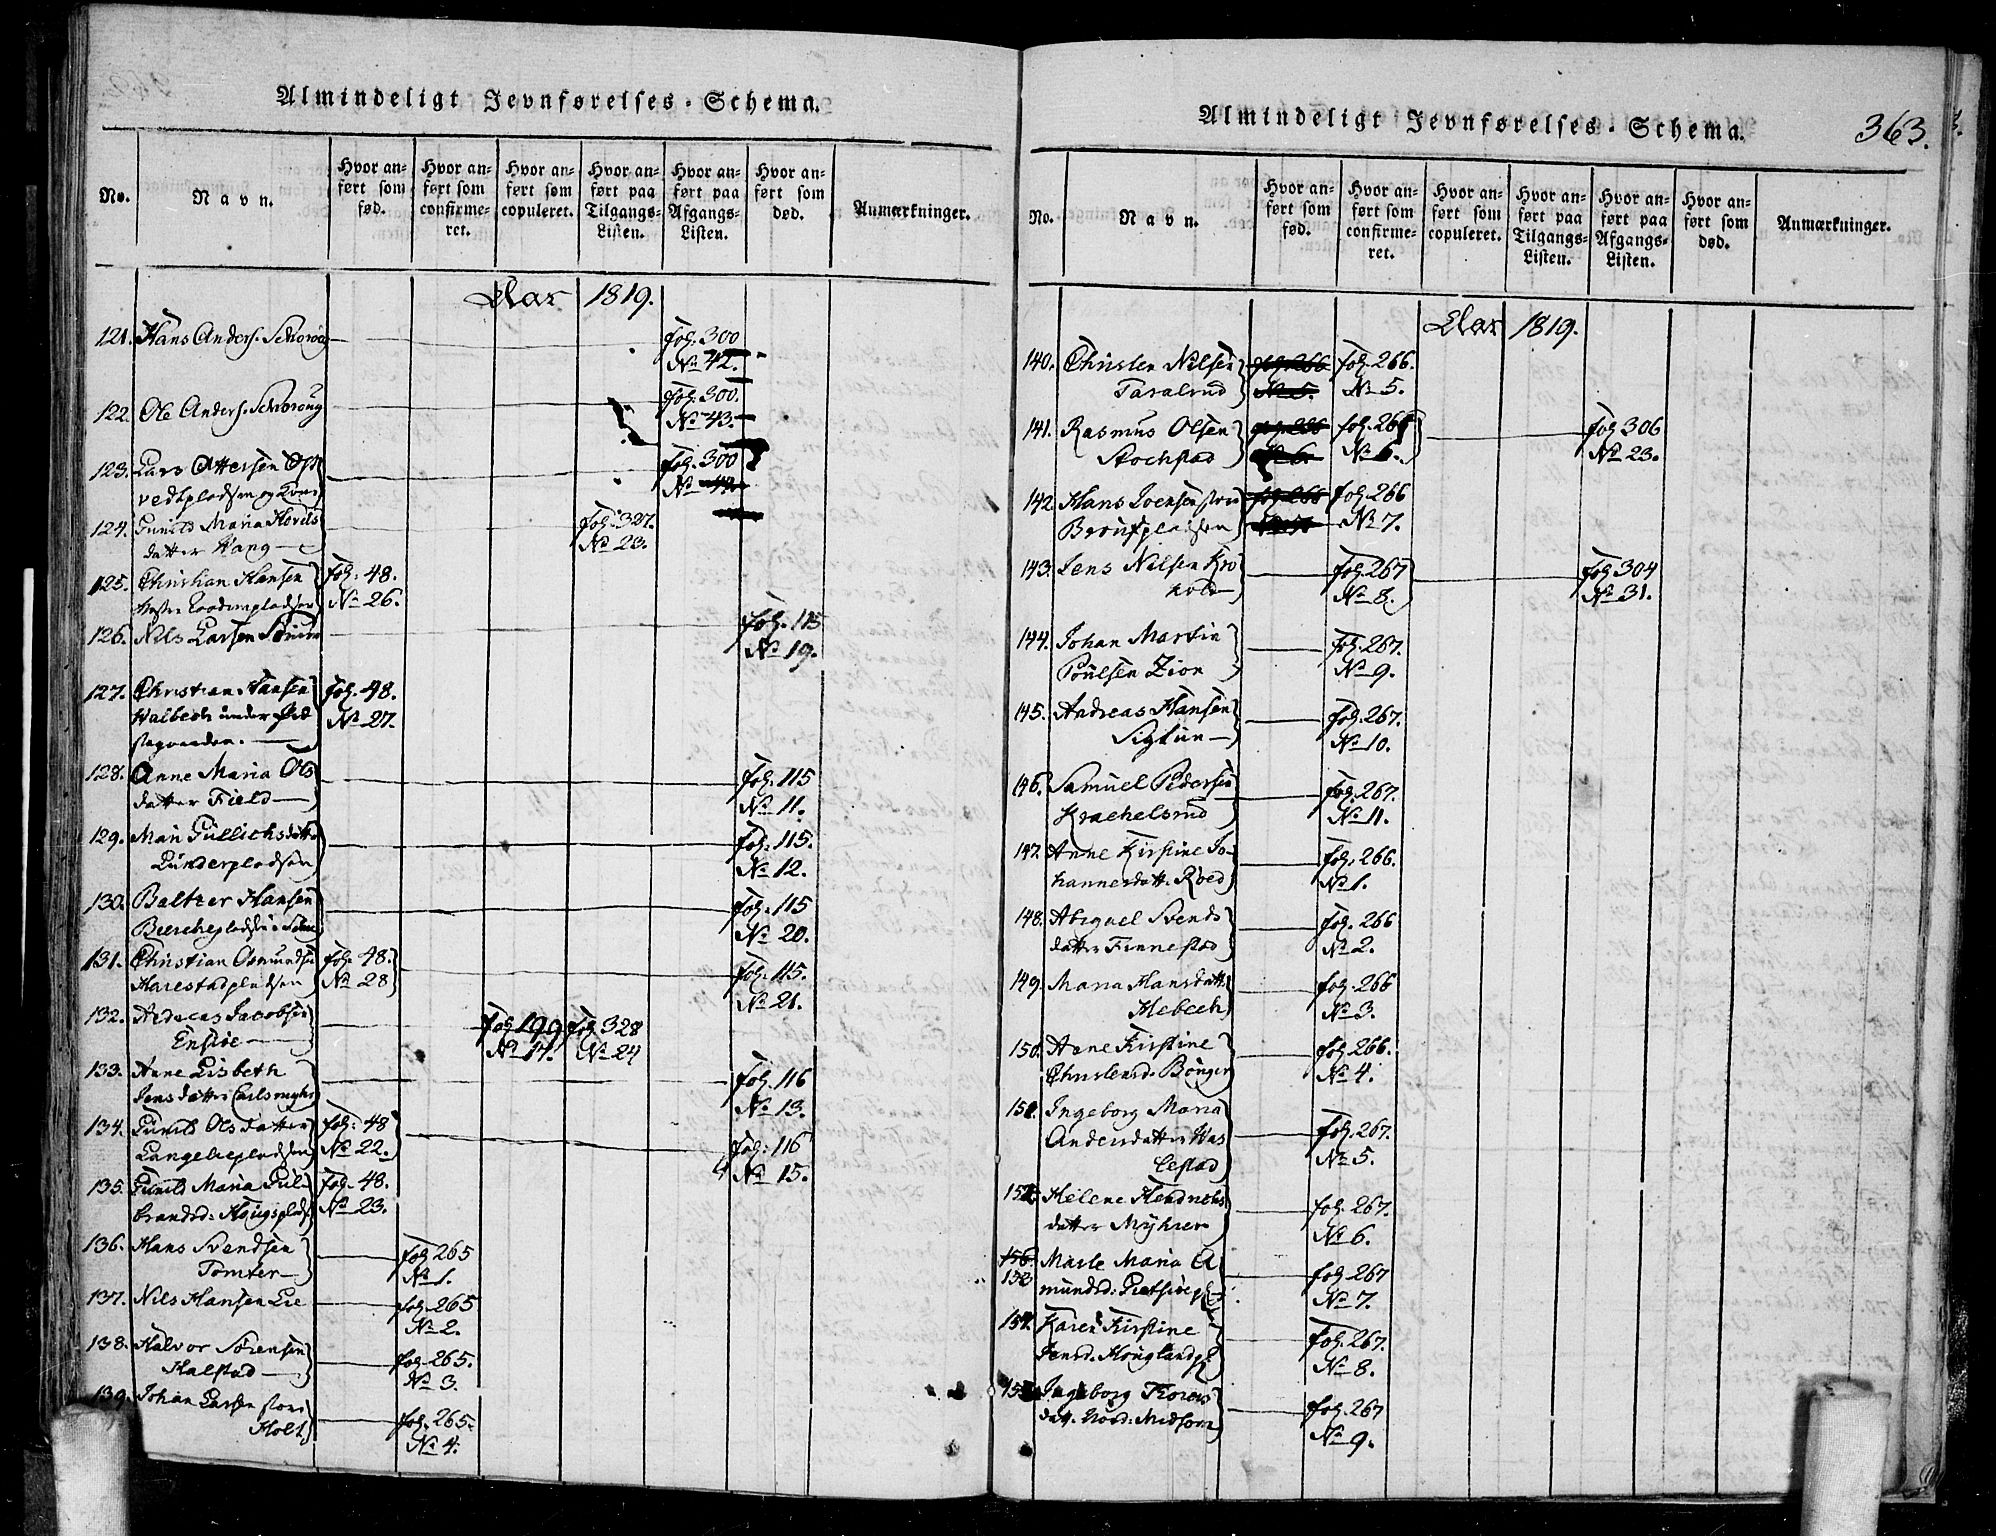 Almindeligt Jevnførelses-Schema.
No.
Navn.
Hvor anført som fød.
Hvor anført som confirmeret.
Hvor anført som copuleret.
Hvor anført paa Tilgangs-Listen.
Hvor anført paa Afgangs-Listen.
Hvor anført som død.
Anmærkninger.
Aar 1819.
121. Hans Anders. fol. 300
No 42.
122. Ole Anders. fol. 300.
No 43.
123. Lars fol. 300
No
124. Gunild Maria fol. 327.
datter Wang No 23.
125. Christian Hansen fol. 48.
No 26.
126. Nils Larsen fol. 115
No 19.
127. Christian Hansen fol. 48.
under No 27.
128. Anne Maria Ols fol. 115
datter Field No 11.
129. Mari Gullichsdatter fol. 115.
Lunderpladsen No 12.
130. Baltzer Hansen fol. 115
No 20.
131. Christian Osmunds fol. 48. fol. 115.
Harestadpladsen No 28 No 21.
132. Jacobsen fol. 199 fol. 328
No 14. No 24
133. Anne Lisbeth fol. 116
Jens datter No 13.
134. Gunild Ols datter fol. 48 fol. 116
No 22. No 15.
135. Gunild Maria Gul fol. 48.
brandsd: No 23.
136. Hans Svendsen fol. 265
Tomter No 1.
137. Nils Hansen Lie fol. 265
No 2.
138. Halvor Sørensen fol. 265.
Halstad No 3.
139. Johan Larsen store fol. 265.
Holt No 4.
Almindeligt Jevnførelses-Schema.
363.
No.
Navn.
Hvor anført som fød.
Hvor anført som confirmeret.
Hvor anført som copuleret.
Hvor anført paa Tilgangs-Listen.
Hvor anført paa Afgangs-Listen.
Hvor anført som død.
Anmærkninger.
Aar 1819.
140. Christen Nilsen fol. 266 fol. 266.
Taralrud No 5. No 5.
141. Rasmus Olsen fol. 266 fol. 266 fol 306
Stochstad No 6. No 6. No 23.
142. Hans fol. 266 fol. 266
No 7.
143. Jens Nilsen Kro fol. 267 fol 304
No 8. No 31.
144. Johan Martin fol. 267.
Poulsen Zion No 9.
145. Andreas Hansen fol. 267.
Siglun No 10.
146. Samuel Pedersen fol. 267.
Krachelsrud No 11.
147. Anne Kirstine Jo fol. 266.
hannesdatt. Roed No 1.
148. Abiguel Svends fol. 266
datter Finnestad No 2.
149. Maria Hansdatt. fol. 266
Hebech No 3.
150. Anne Kirstine fol. 266.
Christensd. No 4.
151. Ingeborg Maria fol. 267.
Andersdatter Was
lestad No 5.
152. Helene Hendrichs fol. 267.
datter Myhrer No 6.
156.
153 Marte Maria A fol. 267
mundsd: No 7.
154. Karen Kirstine fol. 267.
Jensd. Houglandpl No 8.
155. Ingeborg fol. 267
datt. No 9.